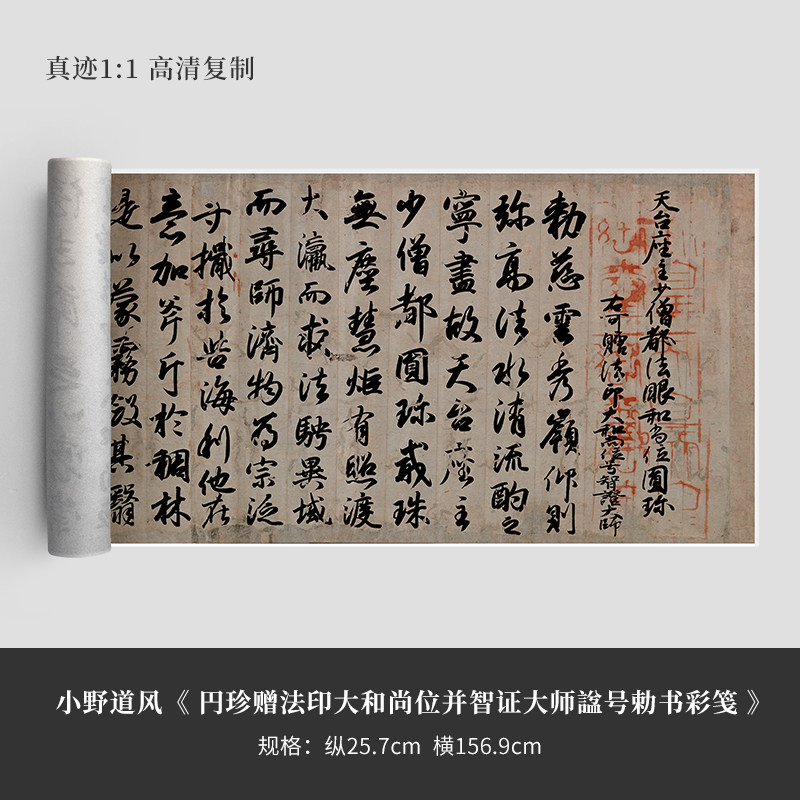 真迹1:1 高清复制
天台座主少僧都法眼和尚位圓珎
右可贈法印大和尚位号智證大師
勅慈雲秀嶺仰則
弥高法水清流酌之
寧盡故天台座主
少僧都圓珎戒珠
無塵慧炬有照渡
大瀛而求法騁異域
而尋師濟物爲宗泛
于攕於苦海利他在
意加斧斤於稠林
是以蒙霧斂其翳
小野道风《円珍赠法印大和尚位并智证大师諡号勅书彩笺》
规格：纵25.7cm 横156.9cm